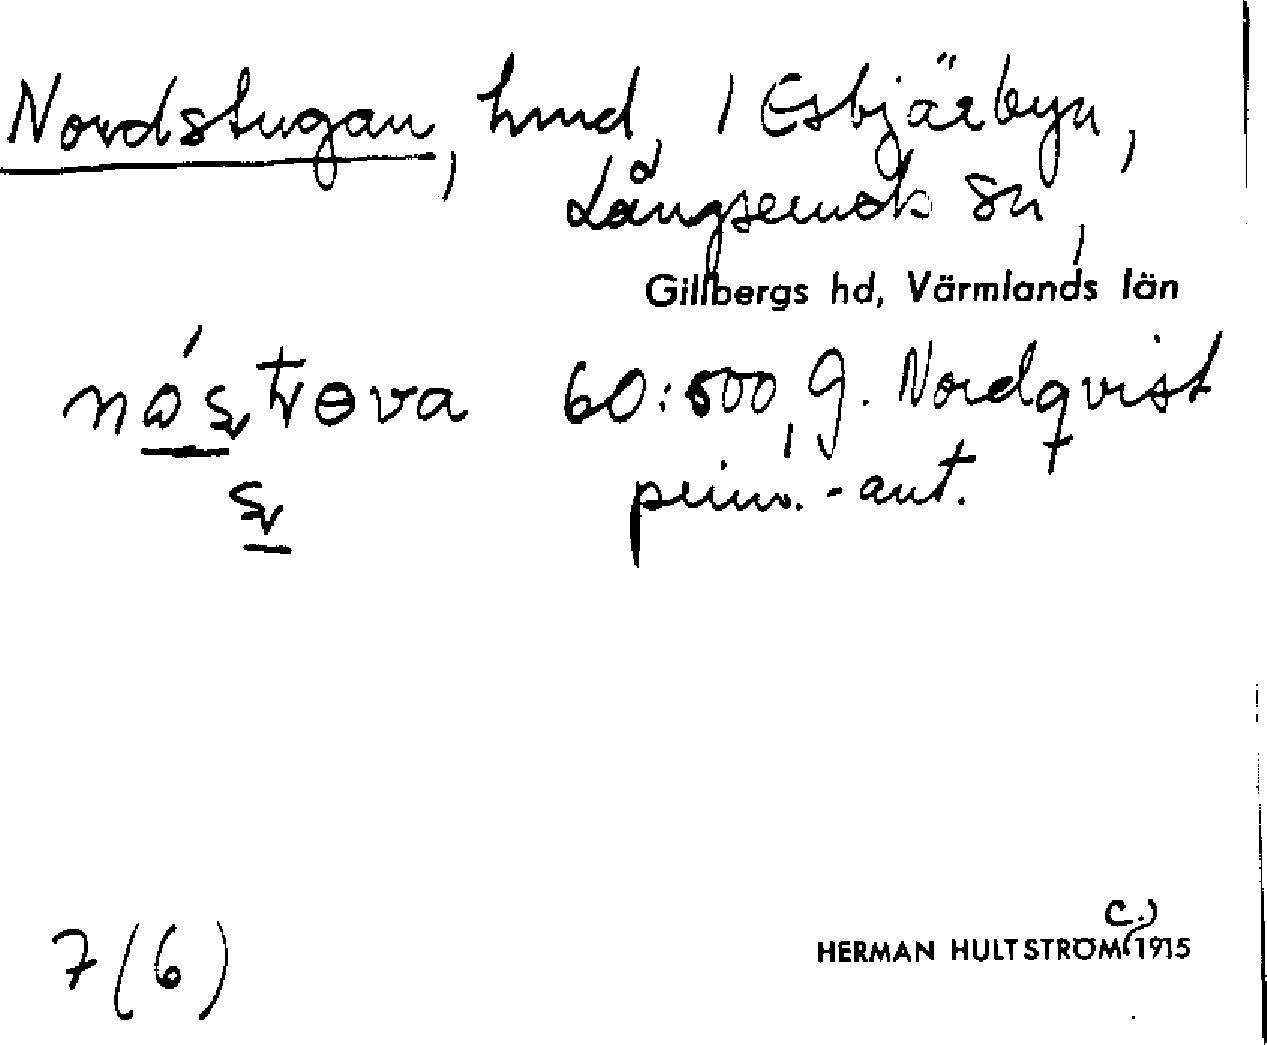 Nordstugan, hmd, i Esbjärbyn,
Långserud sn,
Gillbergs hd, Värmlands län
60:500, G. Nordqvist
prim.-ant.
7 (6)
HERMAN HULTSTRÖM (c.) 1915